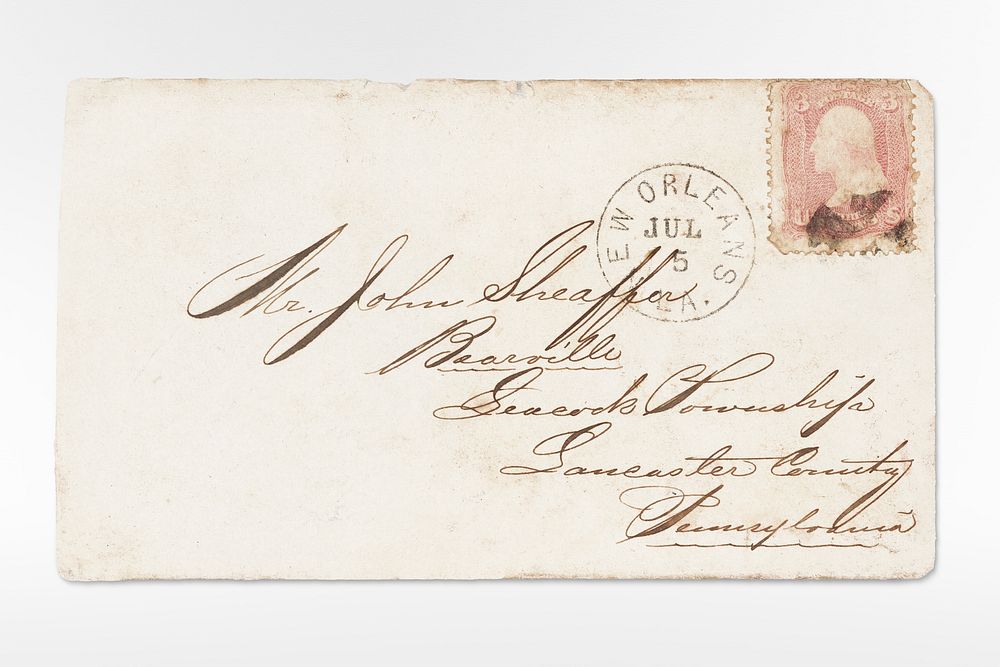 3 3
NEW ORLEANS
JUL
5
LA.
Mr. John Sheaffer
Baarville
Leacock Township
Lancaster County
Pennsylvania